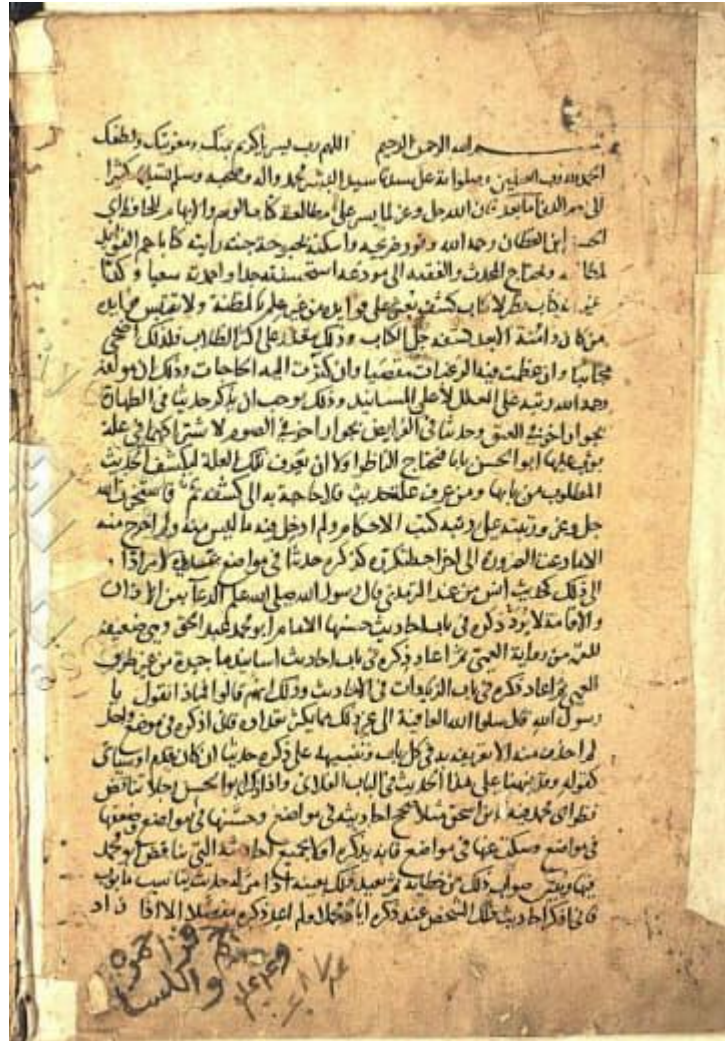 بسم الله الرحمن الرحيم اللهم رب يسر يا كريم بمنك ومعونتك ولطفك
الحمد لله رب العلمين وصلواته على سيدنا سيد البشر محمد واله وصحبه وسلم تسليما كثيرا
الى يوم الدين اما بعد فان الله جل وعز لما يسر على مطالعة كتاب الوهم والايهام للحافظ اى
الحسن ابن القطان رحمه الله ونور ضريحه واسكنه بحبوحة جنته رايته كتابا جم الفوايد
يحتاج المحدث والفقيه الى مودعه استحسنته جدا واحمدته سعيا وكدا
غير انه كتاب نظر لا كتاب كشف يعثر على فوايده من غير علم بالمظنة ولا تقتبس فوايده
من كان الا بعد كشفه جل الكتاب وذلك يتعذر على اكثر الطلاب فلذلك اضحى
مجانبا وان عظمت فيه الرغبات مقصيا وان كثرت اليه الحاجات وذلك ان مولفه
رحمه الله رتبه على العلل لا على المسانيد وذلك يوجب ان يذكر حديثا فى الطهارة
بجوار اخر فى العتق وحديثا فى الفرايض بجوار اخر فى الصوم لاشتراكهما فى علة
بوب عليها ابو الحسن بابا فيحتاج الناظر اولا ان يعرف تلك العلة ليكشف الحديث
المطلوب من بابها ومن عرف علة حديث فلا حاجة به الى كشفه ثم فاستخرت الله
جل وعز ورتبته على رتبة كتب الاحكام ولم ادخل فيه ما ليس منه ولم اخرج منه
الا ما دعت الضرورة الى اخراجه لتكرره كذكره حديثا فى مواضع
الى ذلك كحديث انس من عند الترمذى قال رسول الله صلى الله عليه الدعا بين الاذان
والاقامة لا يرد ذكره فى باب احاديث حسنها الامام ابو محمد عبد الحق وهى ضعيفة
من رواية العمى ثم اعاد ذكره فى باب احاديث اسانيدها جيدة من غير طرف
العمى ثم اعاد ذكره فى باب الزيادات فى الاحاديث وذلك انهم قالوا فماذا نقول يا
رسول الله قال سلوا الله العافية الى غير ذلك مما يكثر تعداده فانى اذكره فى موضع واحد
لم احذف منه الا تعريفه به فى كل باب وتنبيهه على ذكره حديثا ان كان تقدم او سياتى
كقوله وقد نبهنا على هذا الحديث فى الباب الفلانى واذا ذكر ابو الحسن رجلا تناقض
نظر ابى محمد فيه ابن اسحق مثلا صحح احاديثه فى مواضع وحسنها فى مواضع وضعفها
فى مواضع وسكت عنها فى مواضع فانه يذكره اولا بجميع احاديثه التى تناقض ابو محمد
فيها ويبين صواب ذلك من خطايه ثم يعيد ذلك بعينه اذا مر له حديث يناسب ما بوب
فانى اذكر احاديث ذلك الشخص عند ذكره اياه مجملا ولم اعد ذكره مفصلا الا اذا زاد